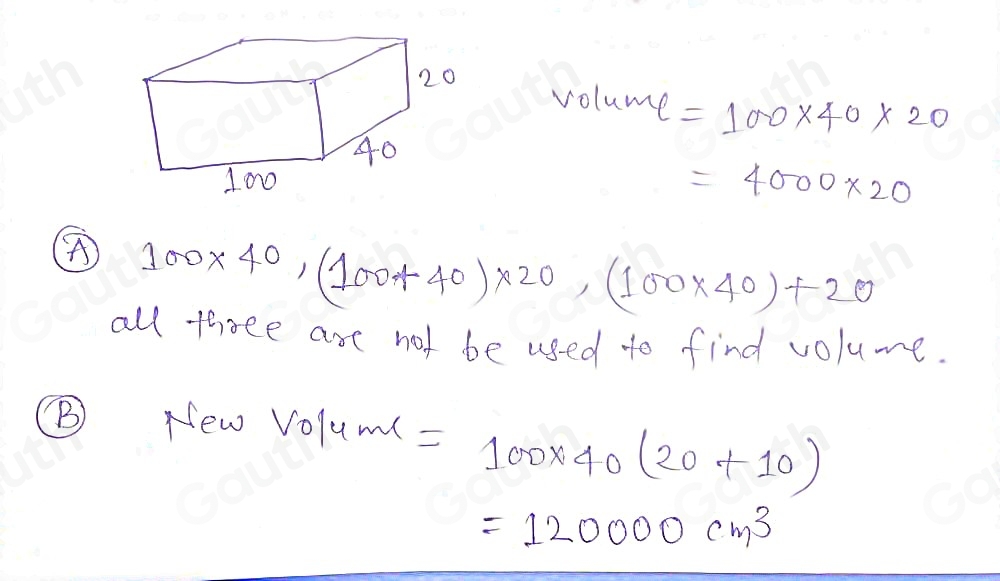 20
40
100
volume = 100 × 40 × 20
= 4000 × 20
(A) 100 × 40 , (100 + 40) × 20 , (100 × 40) + 20
all three are not be used to find volume.
(B) New Volume = 100 × 40 (20 + 10)
= 120000 cm³
Gauth